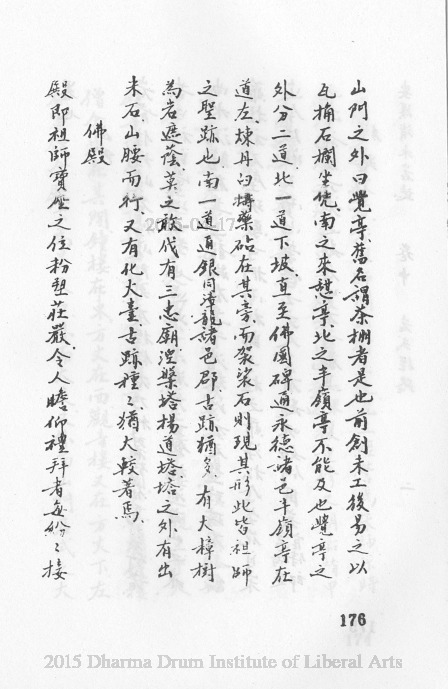 山門之外曰覺亭舊名謂茶棚者是也前創未工後易之以
瓦桷石欄坐凭南之來憇亭北之半嶺亭不能及也覺亭之
外分二道北一道下坡直至佛國碑通永德諸邑半嶺亭在
道左煉丹臼搗藥砧在其旁而袈裟石則現其形此皆祖師
之聖跡也南一道通銀同漳龍諸邑郡古跡猶多有大樟樹
為岩遮蔭莫之敢伐有三忠廟涅槃塔楊道塔塔之外有出
米石山腰而行又有化火臺古跡種〻猶大較著焉
佛殿
殿即祖師寶座之位粉塑莊嚴令人瞻仰禮拜者每紛〻接
176
2015 Dharma Drum Institute of Liberal Arts